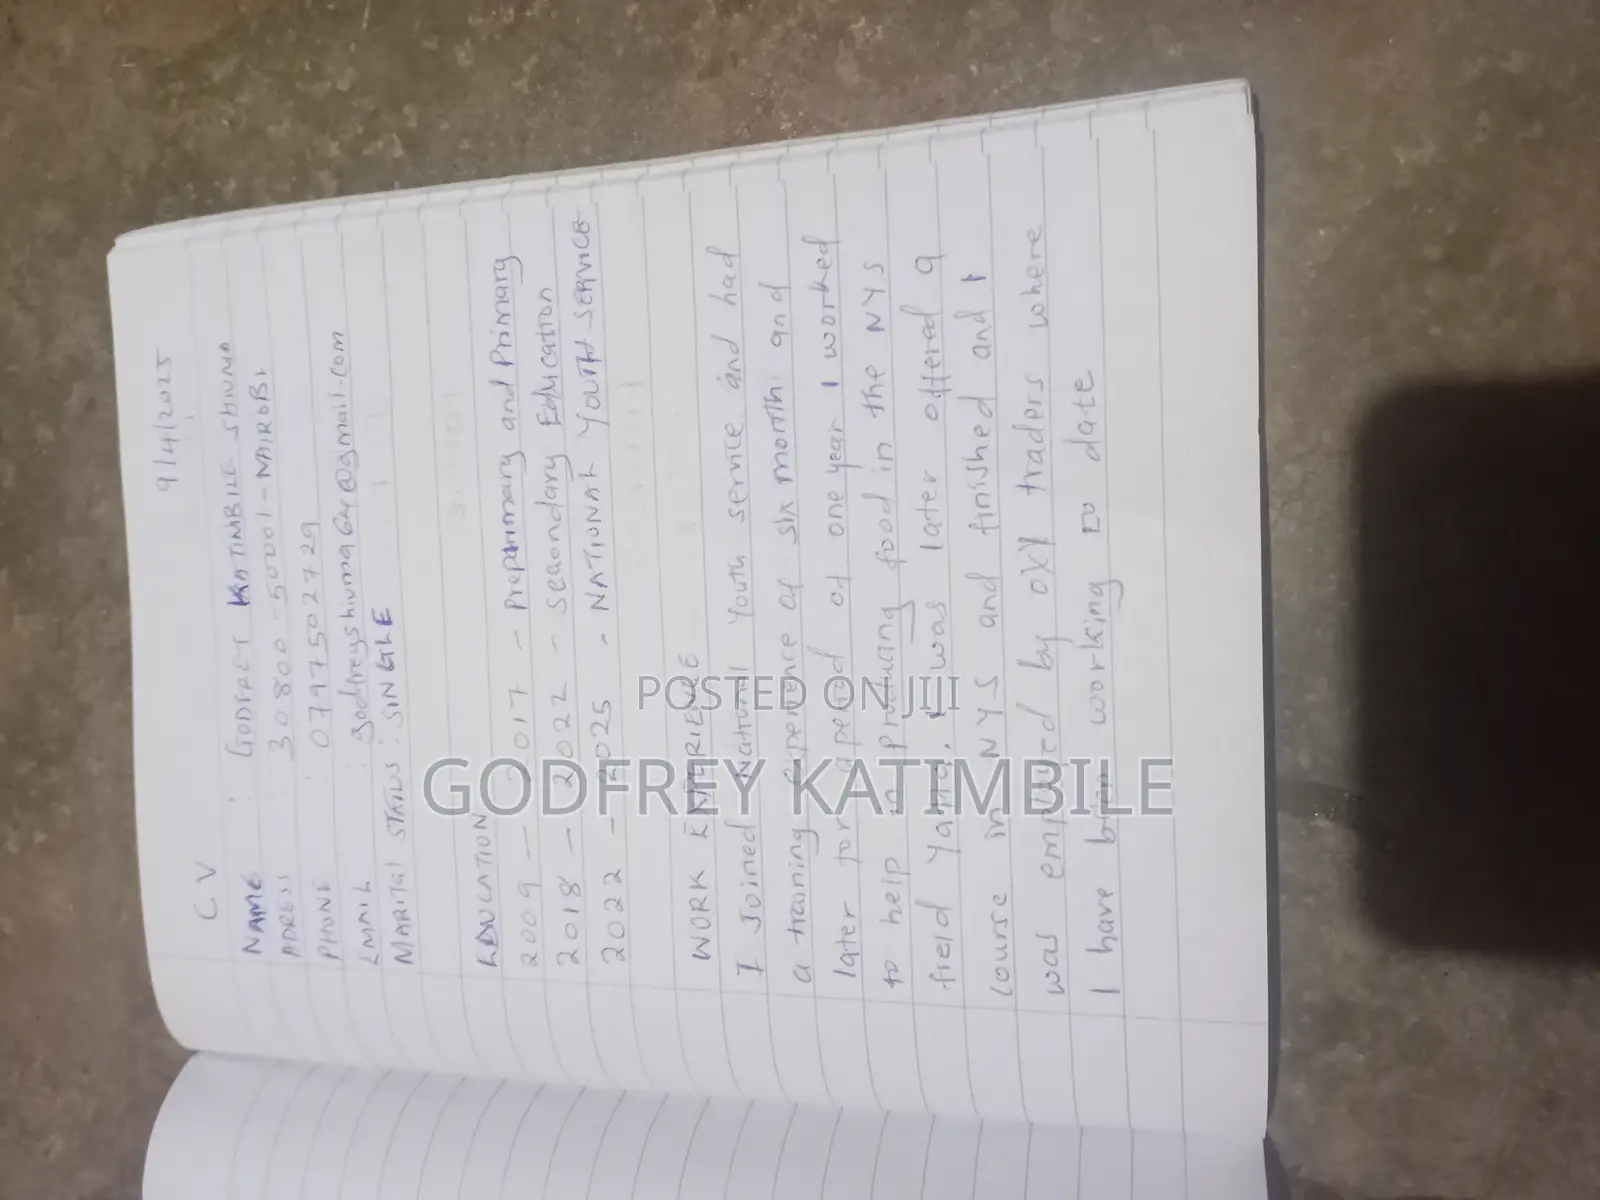 9/4/2025
CV
NAME : GODFREY KATIMBILE SHIUMA
ADRESS : 30800-50001-NAIROBI
PHONE : 0797502729
EMAIL : godfreyshiuma64@gmail.com
MARITAL STATUS : SINGLE
EDUCATION
2009 - 2017 - Preprimary and Primary
2018 - 2022 - Seaondary Education
2022 - 2025 - NATIONAL YOUTH SERVICE
WORK EXPERIENCE
I Joined National Youth service and had
a training experience of six month and
later for a period of one year I worked
to help in Producing food in the NYS
field Yatta. I was later offered a
course in NYS and finished and I
was employed by traders where
I have been working to date
POSTED ON JIJI
GODFREY KATIMBILE